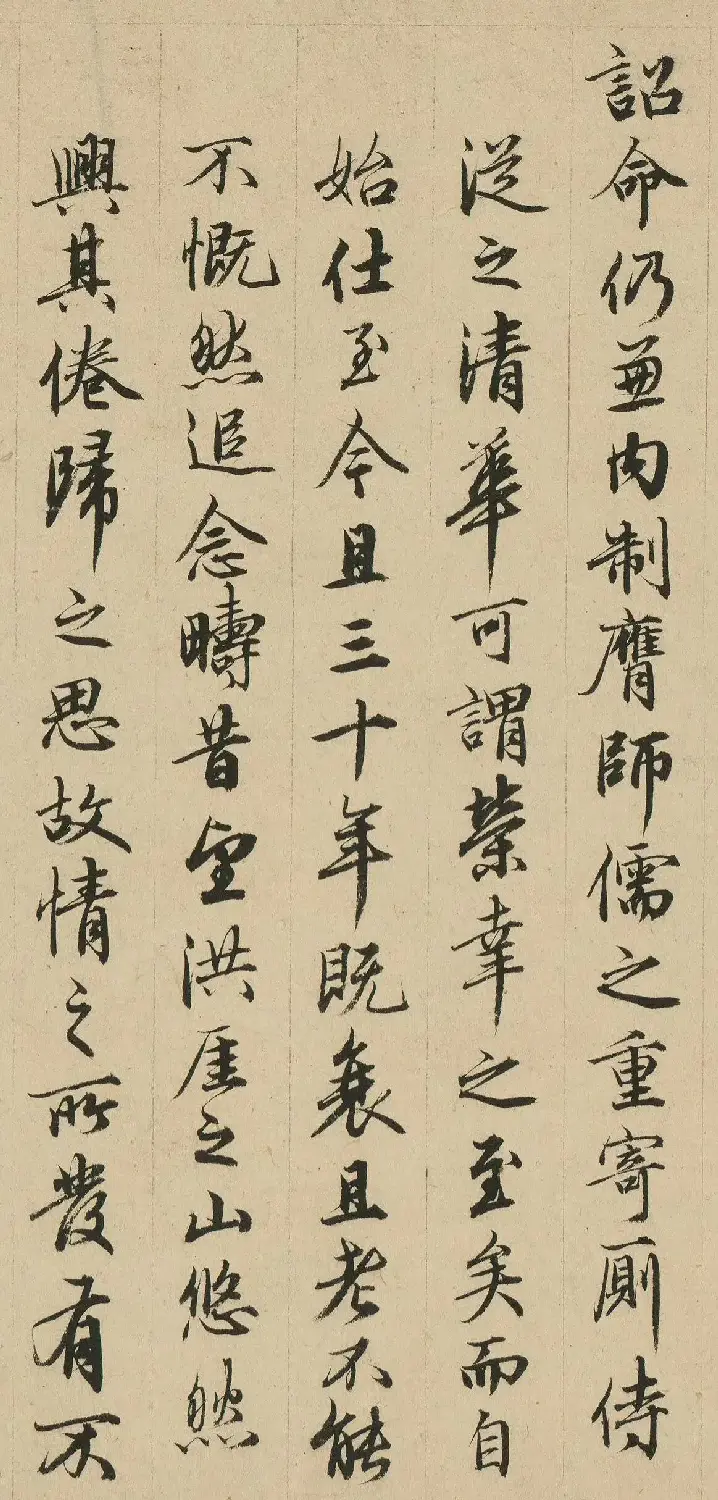 詔命仍兼内制膺師儒之重寄厠侍
從之清華可謂榮幸之至矣而自
始仕至今且三十年既衰且老不能
不慨然追念疇昔望洪厓之山悠然
興其倦歸之思故情之所發有不